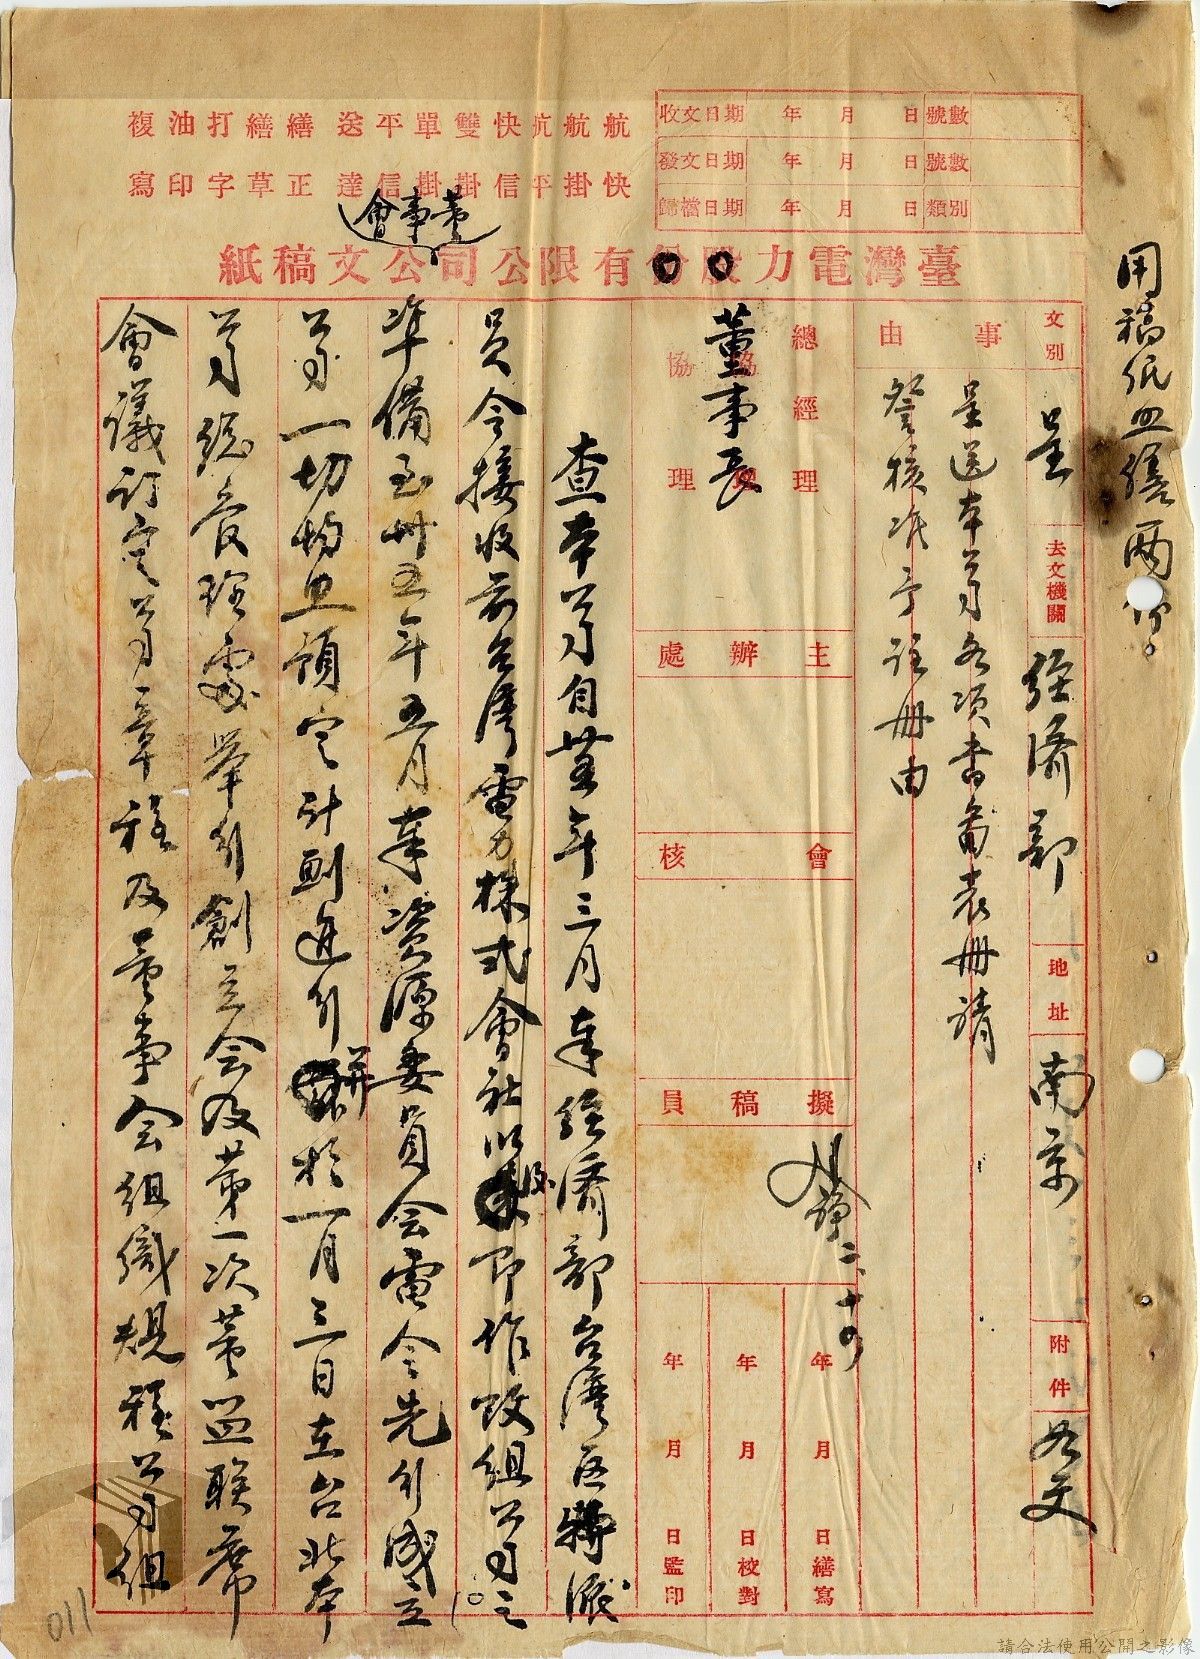 用稿紙並繕兩份
收文日期 年 月 日 號數
發文日期 年 月 日 號數
歸檔日期 年 月 日 類別
航快 航掛 航平 快信 雙掛 單掛 平信 送達 繕正 繕草 打字 油印 複寫
董事會
臺灣電力股份有限公司公文稿紙
文別 呈 去文機關 經濟部 地址 南京 附件 如文
事由
呈送本公司各項書圖表冊請
詧核准予註冊由
總經理
協理
協理
董事長
主辦處
會核
擬稿員
二、十四
年 月 日繕寫
年 月 日校對
年 月 日監印
查本公司自 年三月奉經濟部台灣區特派
員令接收前台灣電力株式會社以後即作改組公司之
準備至卅五年五月奉資源委員會電令先行成立
公司一切均照預定計劃進行並於一月三日在台北本
公司總管理處舉行創立会及第一次董監联席
會議訂定公司章程及董事会組織規程公司組
011
請合法使用公開之影像